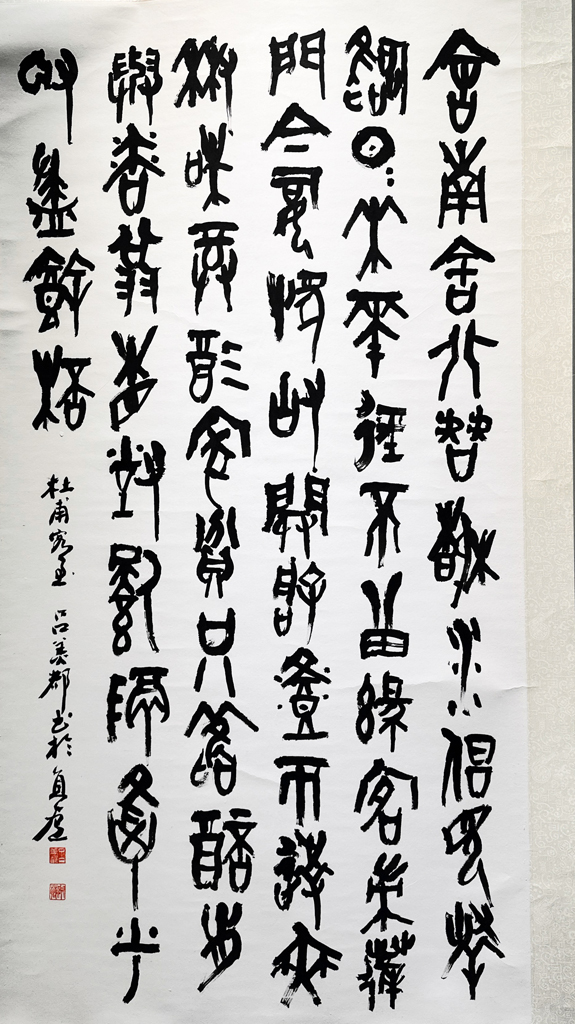 舍南舍北皆春水但見群
鷗日=來花徑不曾緣客掃蓬
門今始為君開盤飧市遠無
兼味樽酒家貧只舊醅肯
與鄰翁相對飲隔籬呼
取盡餘杯
杜甫客至 呂美都书於